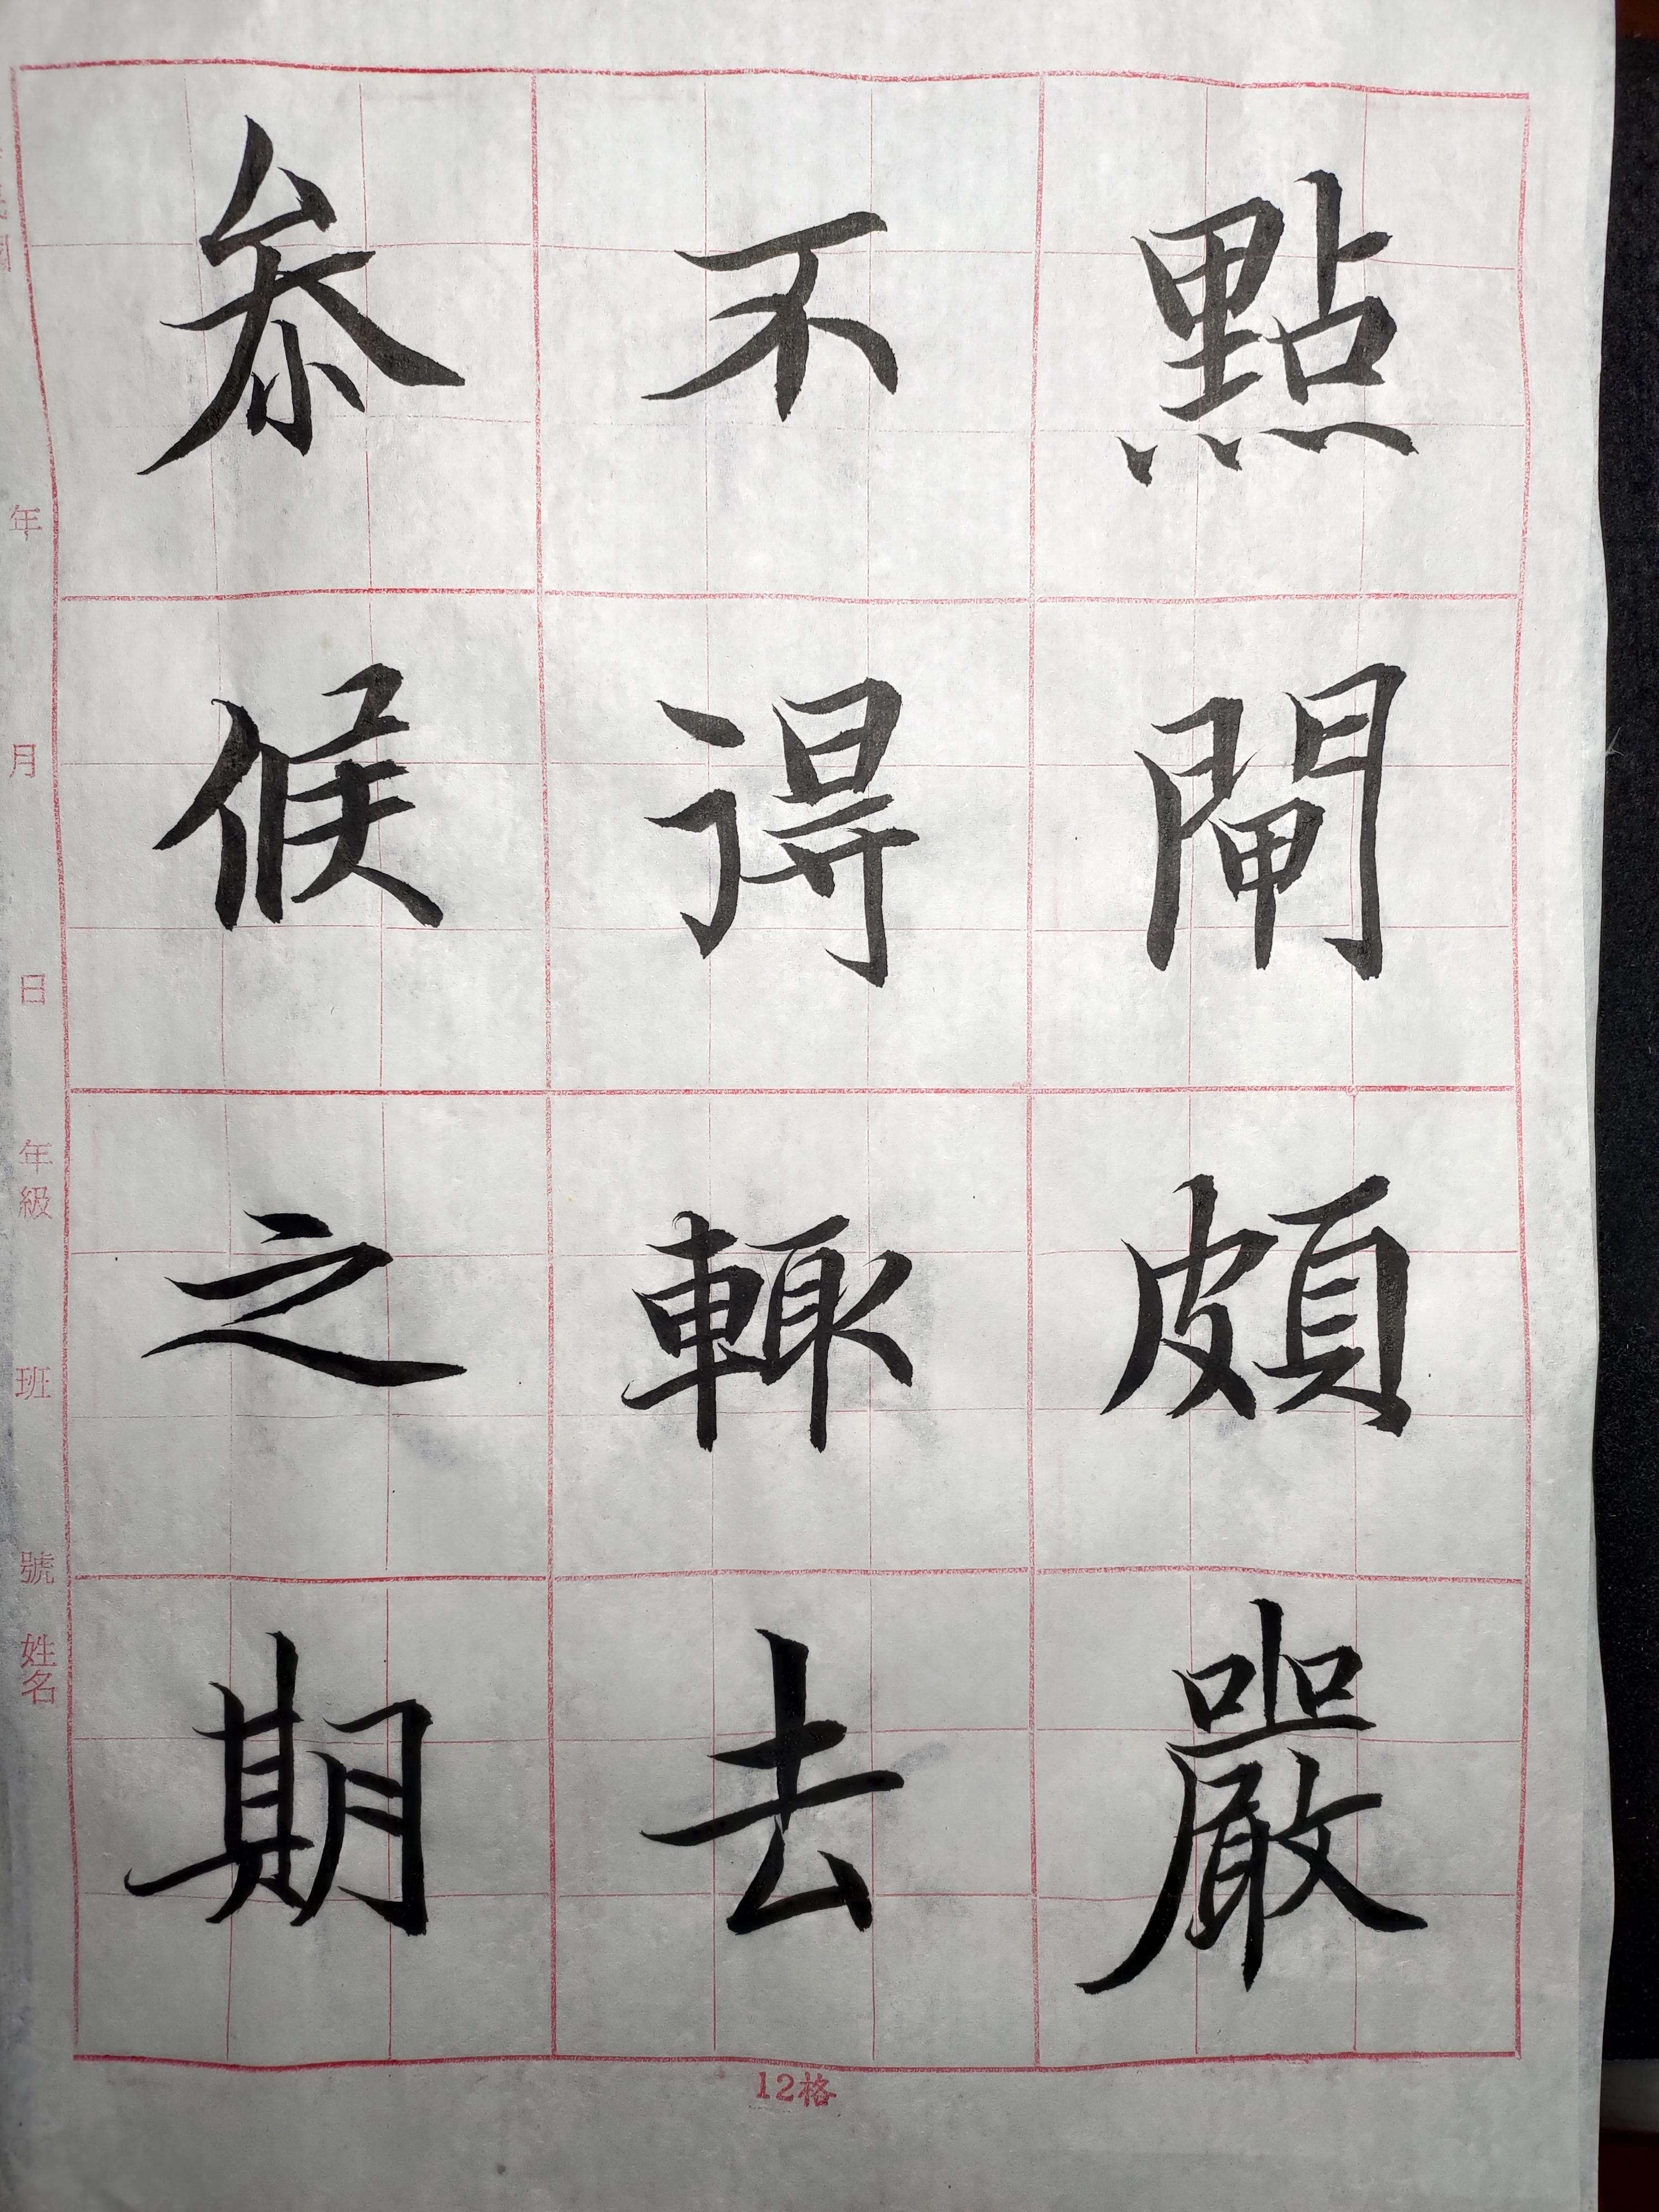 點閘頗嚴
不得輙去
叅候之期
年 月 日 年級 班 號 姓名
12格